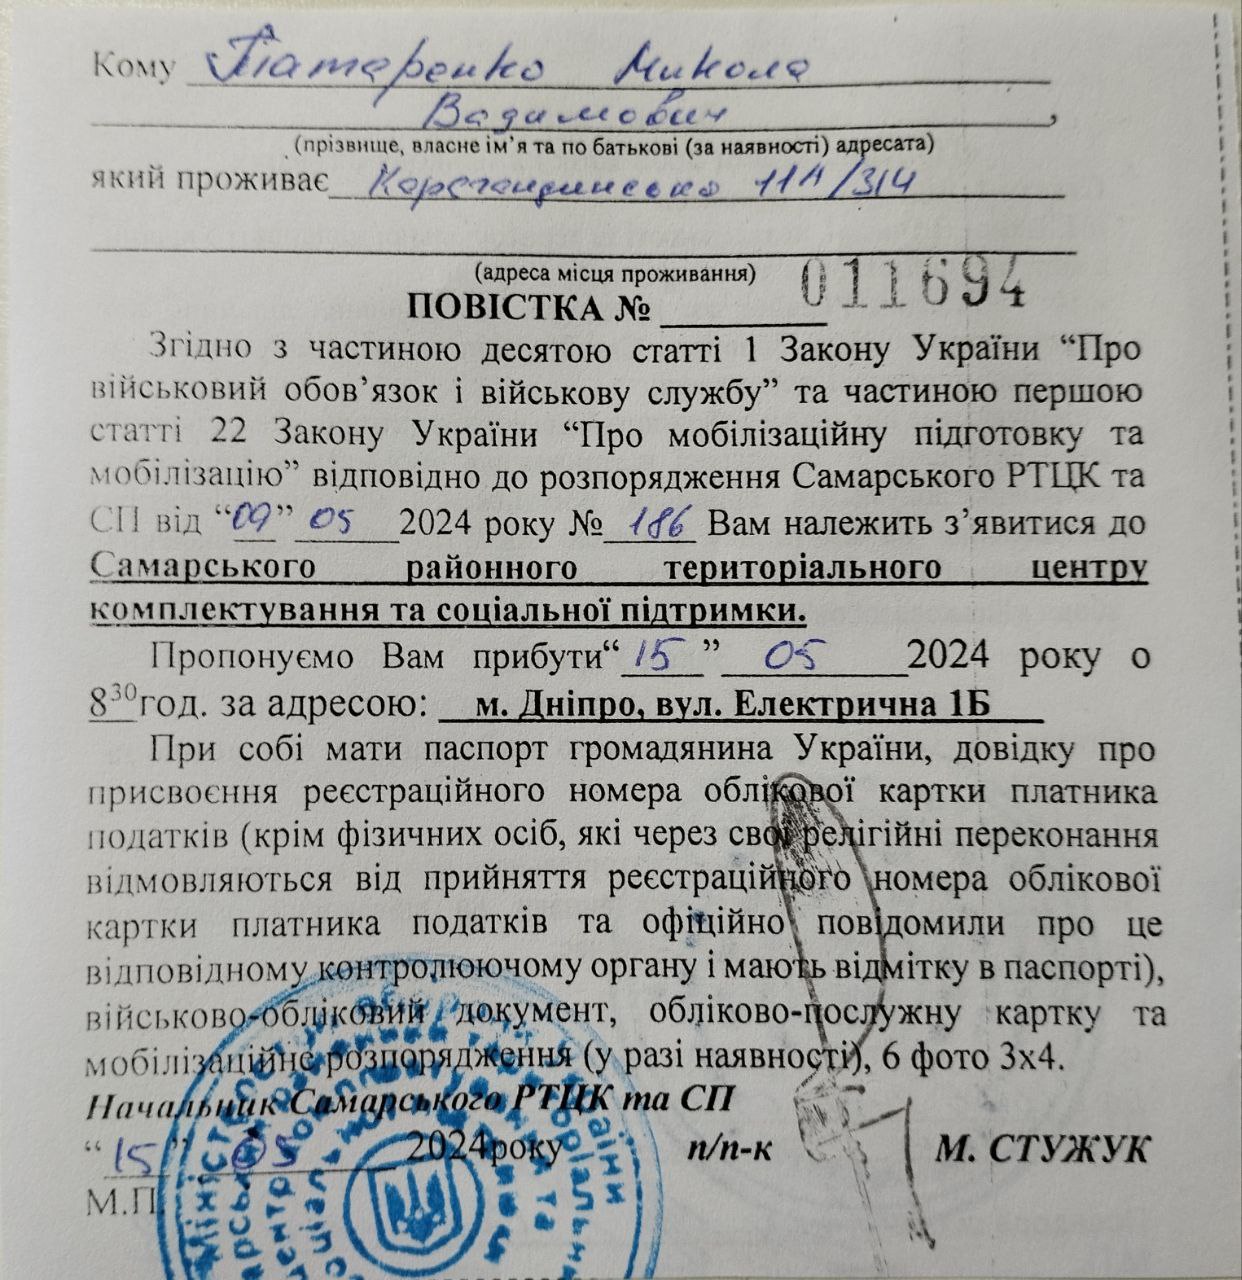 Кому Татаренко Микола
Вадимович,
(прізвище, власне ім'я та по батькові (за наявності) адресата)
який проживає Карагандинська 11А/314
(адреса місця проживання)
ПОВІСТКА № 011694
Згідно з частиною десятою статті 1 Закону України “Про
військовий обов’язок і військову службу” та частиною першою
статті 22 Закону України “Про мобілізаційну підготовку та
мобілізацію” відповідно до розпорядження Самарського РТЦК та
СП від “09” 05 2024 року № 186 Вам належить з’явитися до
Самарського районного територіального центру
комплектування та соціальної підтримки.
Пропонуємо Вам прибути“15” 05 2024 року о
8³⁰год. за адресою: м. Дніпро, вул. Електрична 1Б
При собі мати паспорт громадянина України, довідку про
присвоєння реєстраційного номера облікової картки платника
податків (крім фізичних осіб, які через свої релігійні переконання
відмовляються від прийняття реєстраційного номера облікової
картки платника податків та офіційно повідомили про це
відповідному контролюючому органу і мають відмітку в паспорті),
військово-обліковий документ, обліково-послужну картку та
мобілізаційне розпорядження (у разі наявності), 6 фото 3х4.
Начальник Самарського РТЦК та СП
“15” 05 2024року п/п-к М. СТУЖУК
М.П.